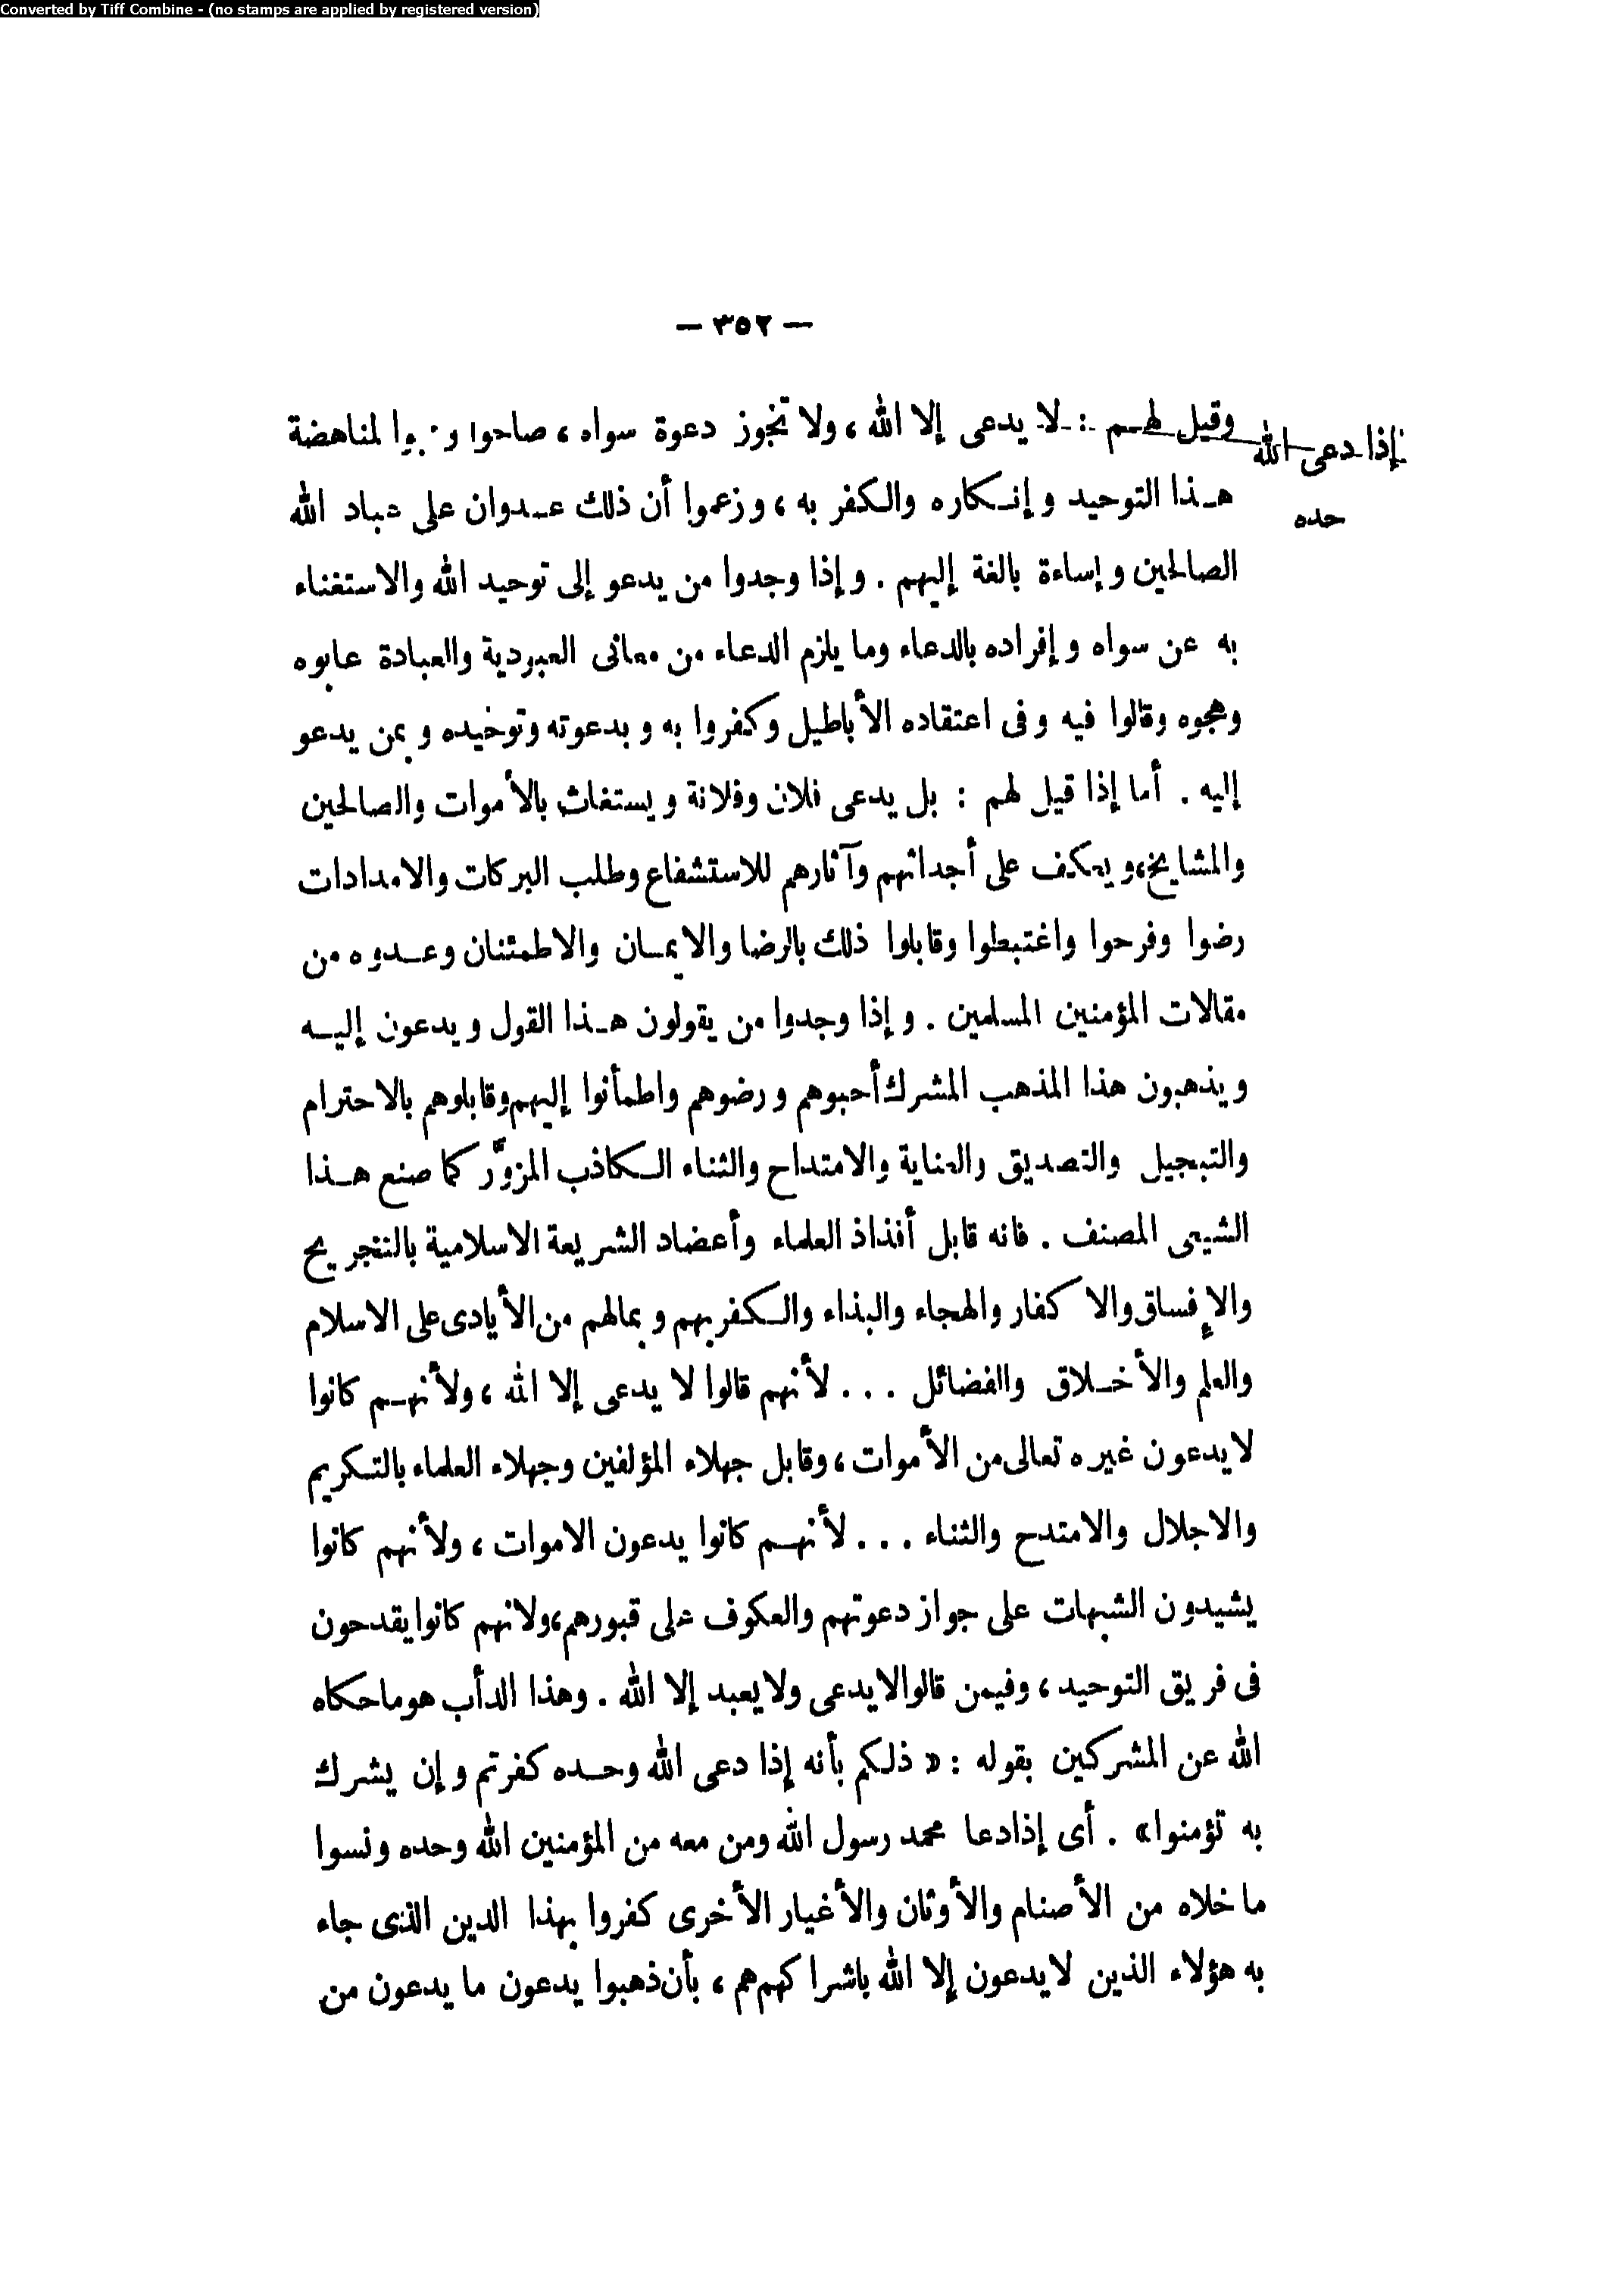 Converted by Tiff Combine - (no stamps are applied by registered version)
— ٣٥٢ —
إذا دعى الله
حده
وقيل لهم : لا يدعى إلا الله ، ولا تجوز دعوة سواه ، صاحوا لمناهضة
هذا التوحيد وإنكاره والكفر به ، وزعموا أن ذلك عدوان على عباد الله
الصالحين وإساءة بالغة إليهم . وإذا وجدوا من يدعو إلى توحيد الله والاستغناء
به عن سواه وإفراده بالدعاء وما يلزم الدعاء من معانى العبودية والعبادة عابوه
وهجوه وقالوا فيه وفى اعتقاده الأباطيل وكفروا به وبدعوته وتوحيده وبمن يدعو
إليه . أما إذا قيل لهم : بل يدعى فلان وفلانة ويستغاث بالأموات والصالحين
والمشايخ، ويعكف على أجداثهم وآثارهم للاستشفاع وطلب البركات والامدادات
رضوا وفرحوا واغتبطوا وقابلوا ذلك بالرضا والايمان والاطمئنان وعدوه من
مقالات المؤمنين المسلمين . وإذا وجدوا من يقولون هذا القول ويدعون إليه
ويذهبون هذا المذهب المشرك أحبوهم ورضوهم واطمأنوا إليهم وقابلوهم بالاحترام
والتبجيل والتصديق والعناية والامتداح والثناء الكاذب المزوَّر كما صنع هذا
الشيعى المصنف . فانه قابل أفذاذ العلماء وأعضاد الشريعة الاسلامية بالتجريح
والإفساق والاكفار والهجاء والبذاء والكفر بهم وبمالهم من الأيادى على الاسلام
والعلم والأخلاق والفضائل . . . لأنهم قالوا لا يدعى إلا الله ، ولأنهم كانوا
لا يدعون غيره تعالى من الأموات ، وقابل جهلاء المؤلفين وجهلاء العلماء بالتكريم
والاجلال والامتدح والثناء . . . لأنهم كانوا يدعون الاموات ، ولأنهم كانوا
يشيدون الشبهات على جواز دعوتهم والعكوف على قبورهم، ولانهم كانوا يقدحون
فى فريق التوحيد ، وفيمن قالوا لا يدعى ولا يعبد إلا الله . وهذا الدأب هو ما حكاه
الله عن المشركين بقوله : « ذلكم بأنه إذا دعى الله وحده كفرتم وإن يشرك
به تؤمنوا » . أى إذا دعا محمد رسول الله ومن معه من المؤمنين الله وحده ونسوا
ما خلاه من الأصنام والأوثان والأغيار الأخرى كفروا بهذا الدين الذى جاء
به هؤلاء الذين لا يدعون إلا الله باشراكهم هم ، بأن ذهبوا يدعون ما يدعون من